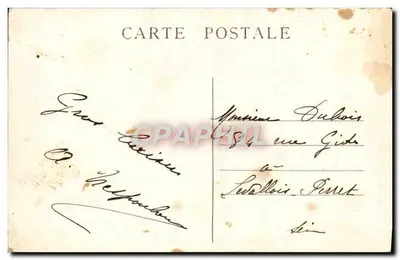 CARTE POSTALE
Gros baisers
Monsieur Dubois
84 rue Gide
à
Levallois-Perret
Seine
CPAPHIL